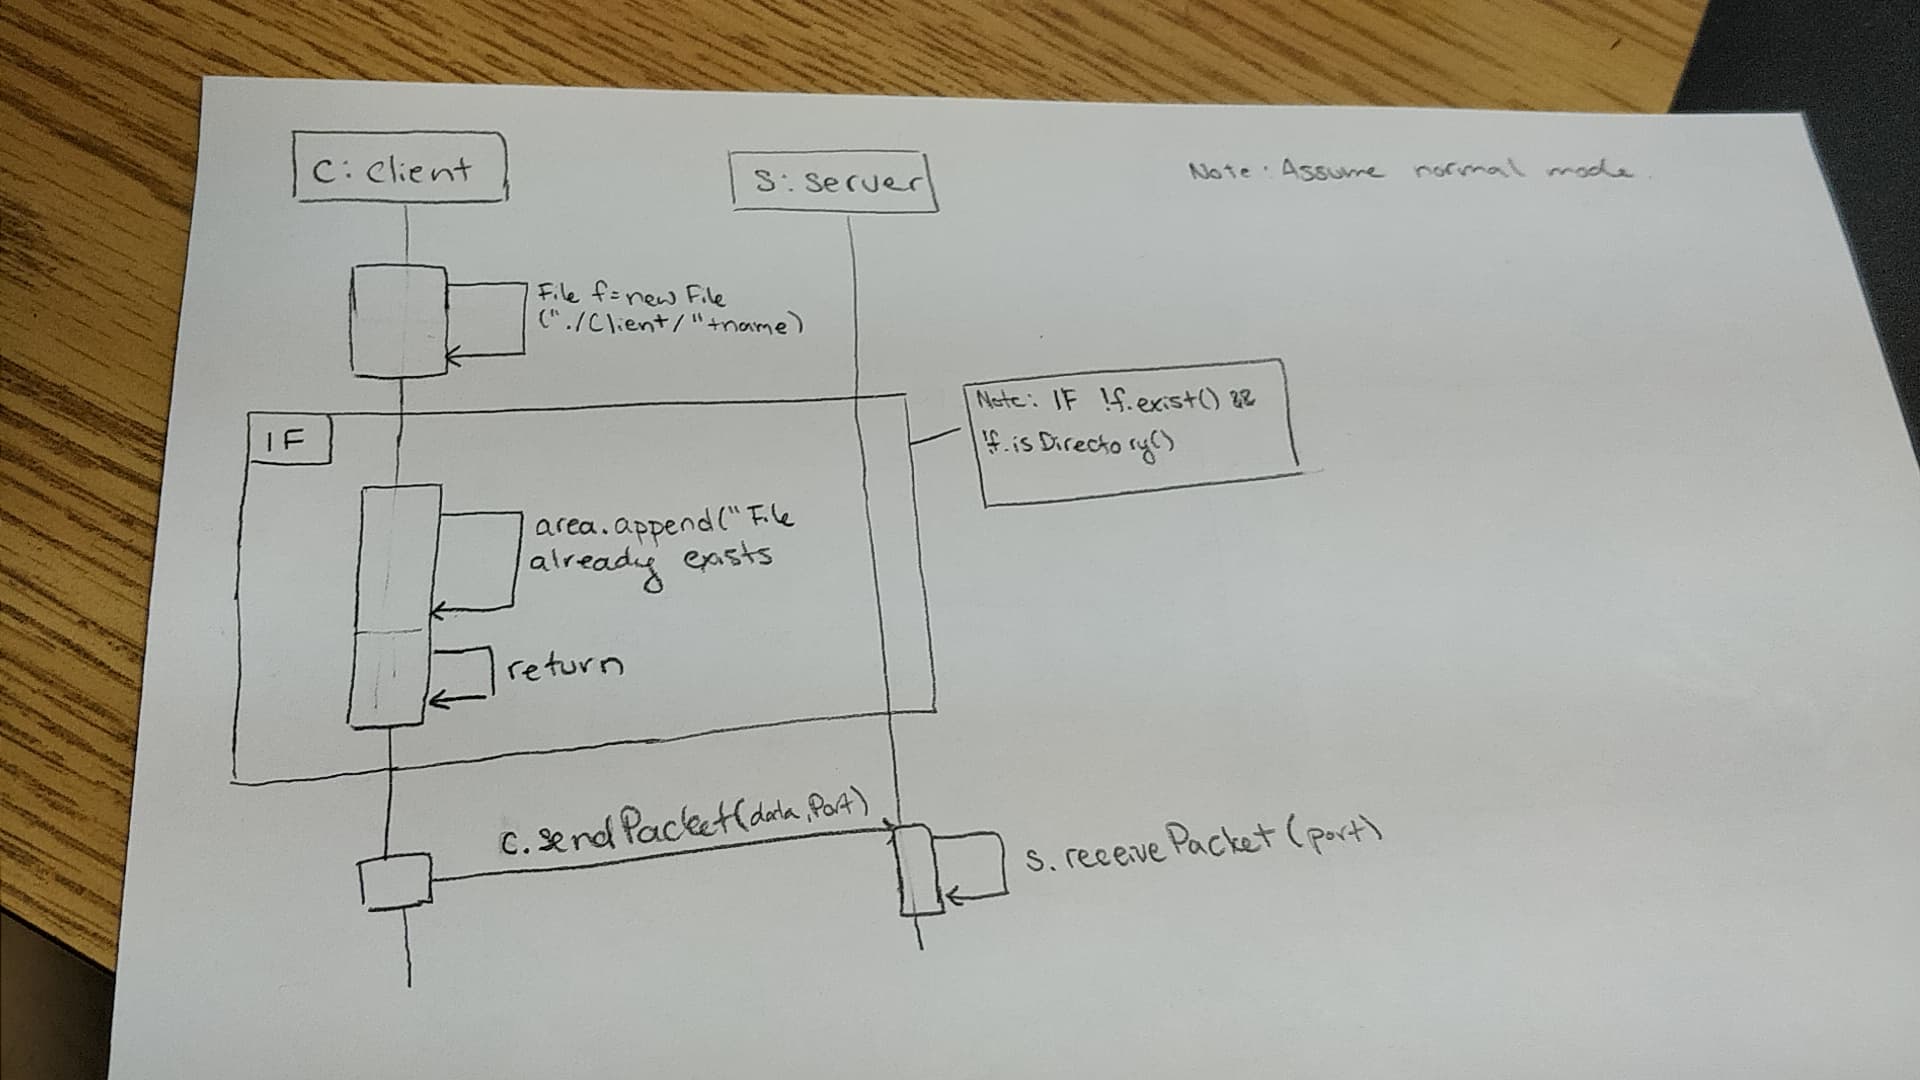 C: Client
S: Server
Note: Assume normal mode.
File f=new File
("./Client/"+name)
IF
Note: IF !f.exist() &&
!f.isDirectory()
area.append("File
already exists
return
C.sendPacket(data,Port)
S.receivePacket(port)